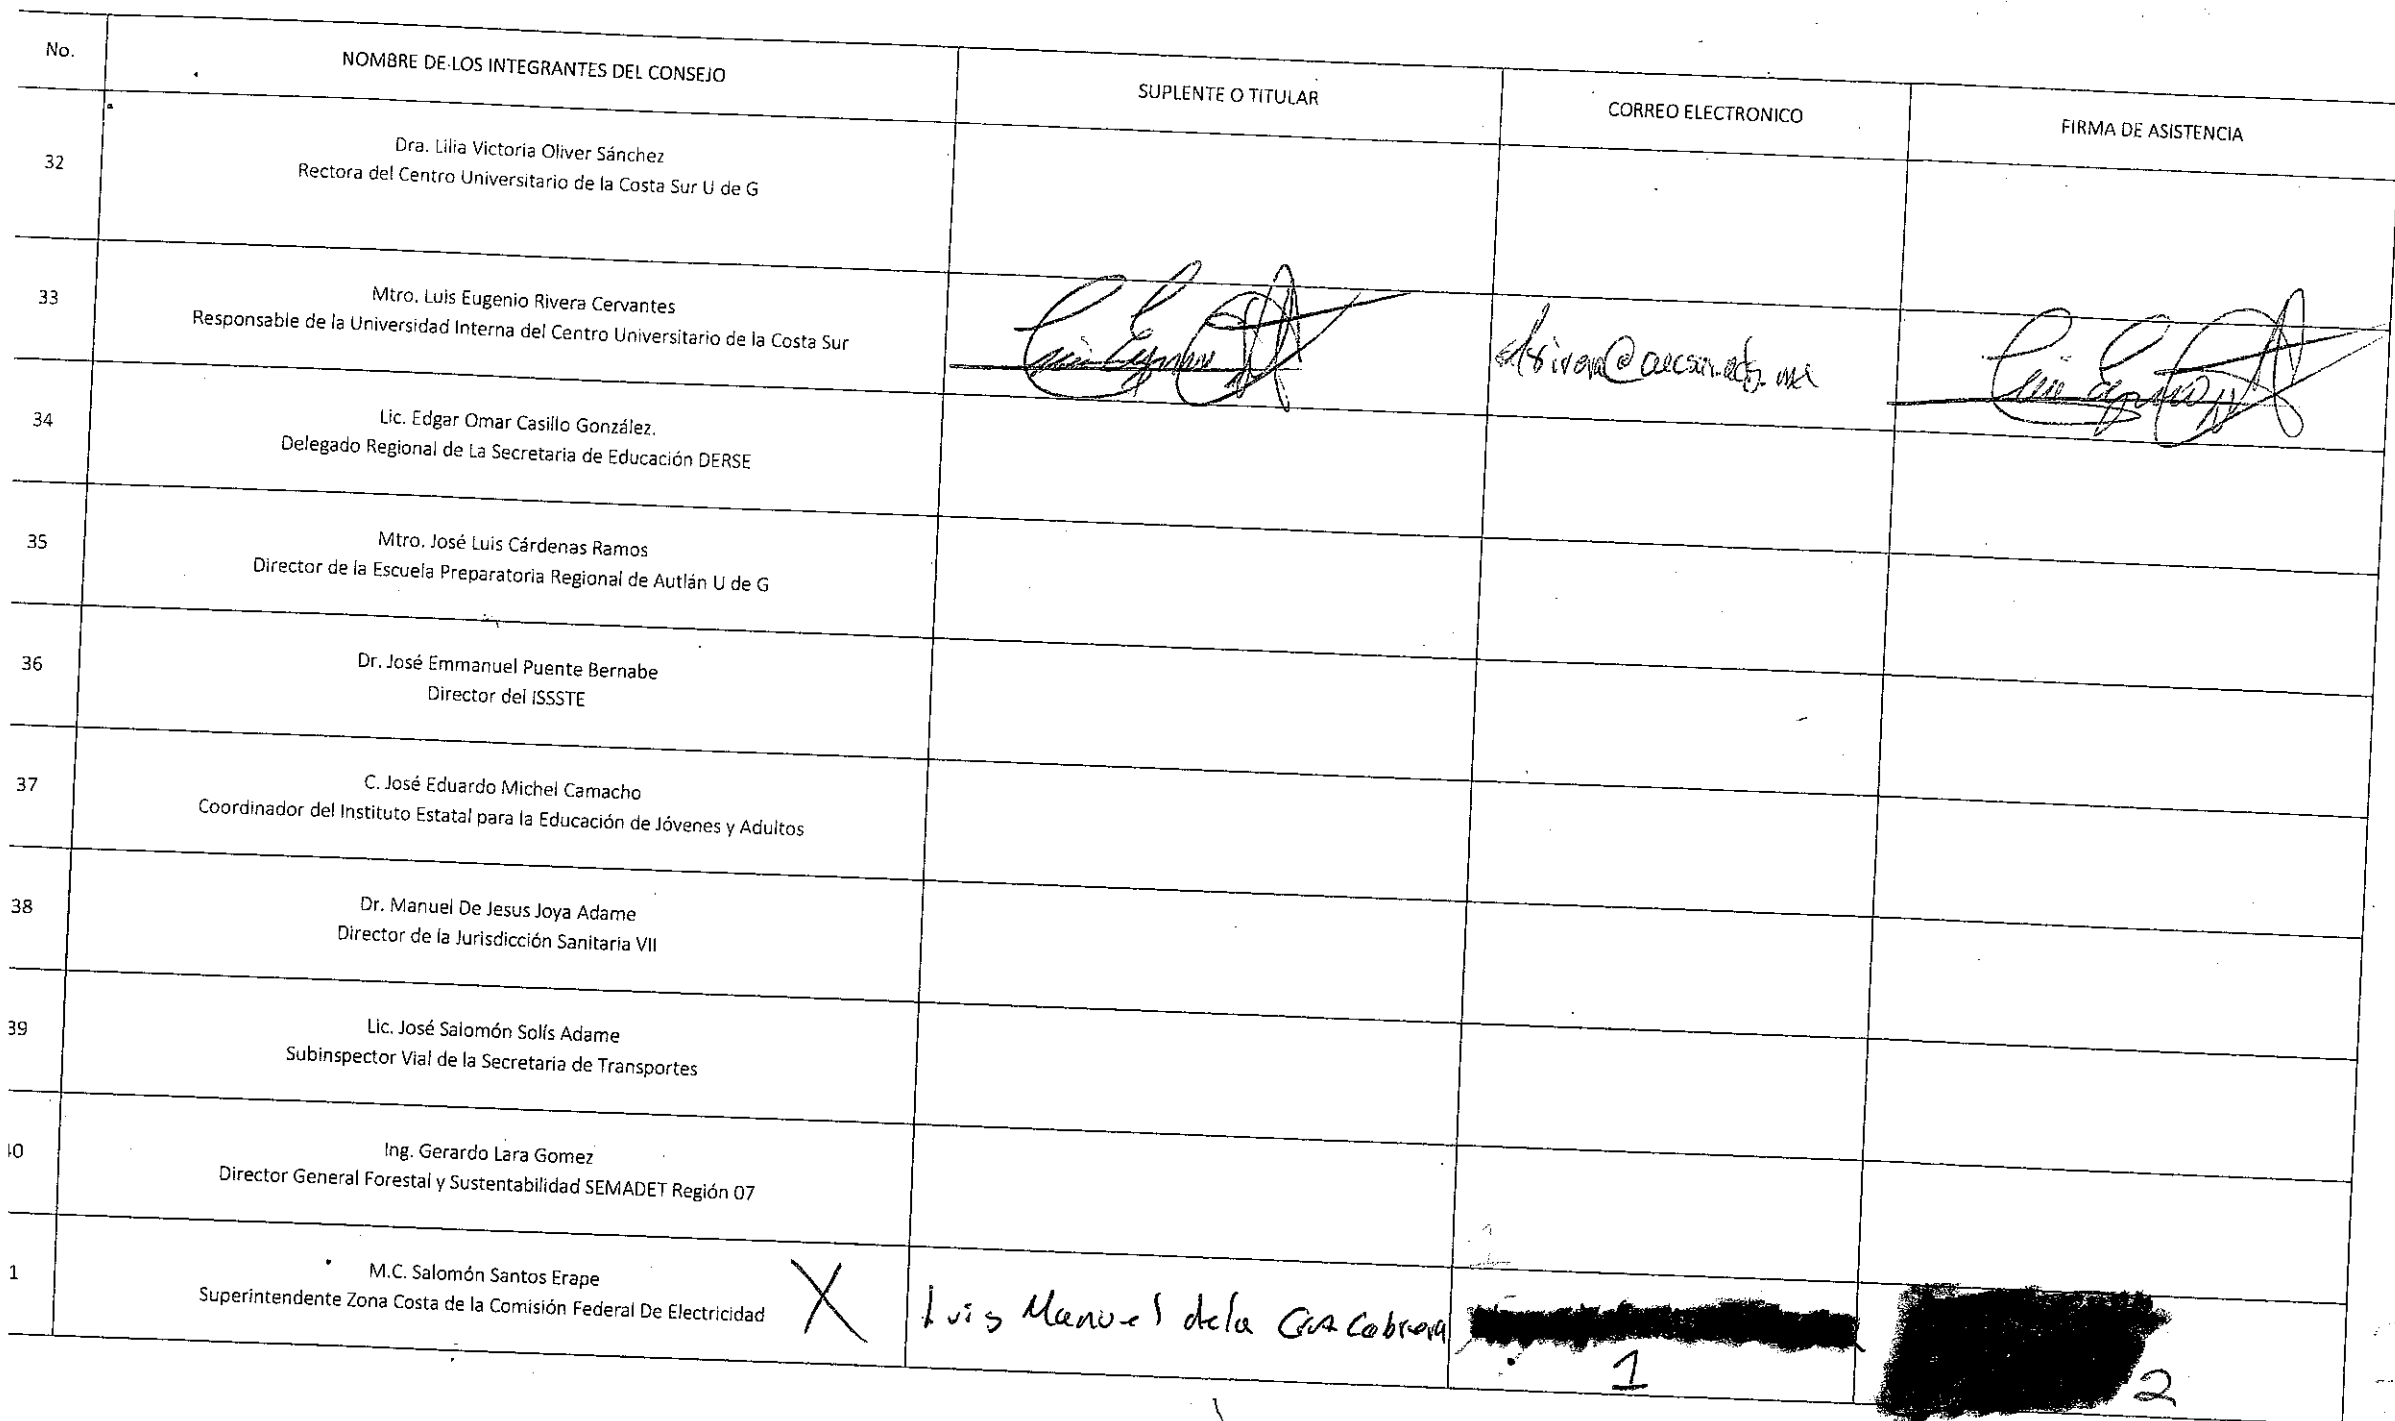 No.
NOMBRE DE LOS INTEGRANTES DEL CONSEJO
SUPLENTE O TITULAR
CORREO ELECTRONICO
FIRMA DE ASISTENCIA
32
Dra. Lilia Victoria Oliver Sánchez
Rectora del Centro Universitario de la Costa Sur U de G
33
Mtro. Luis Eugenio Rivera Cervantes
Responsable de la Universidad Interna del Centro Universitario de la Costa Sur
34
Lic. Edgar Omar Casillo González.
Delegado Regional de La Secretaria de Educación DERSE
35
Mtro. José Luis Cárdenas Ramos
Director de la Escuela Preparatoria Regional de Autlán U de G
36
Dr. José Emmanuel Puente Bernabe
Director del ISSSTE
37
C. José Eduardo Michel Camacho
Coordinador del Instituto Estatal para la Educación de Jóvenes y Adultos
38
Dr. Manuel De Jesus Joya Adame
Director de la Jurisdicción Sanitaria VII
39
Lic. José Salomón Solís Adame
Subinspector Vial de la Secretaria de Transportes
40
Ing. Gerardo Lara Gomez
Director General Forestal y Sustentabilidad SEMADET Región 07
1
M.C. Salomón Santos Erape
Superintendente Zona Costa de la Comisión Federal De Electricidad
X
Luis Manuel de la Cruz Cabrera
1
2